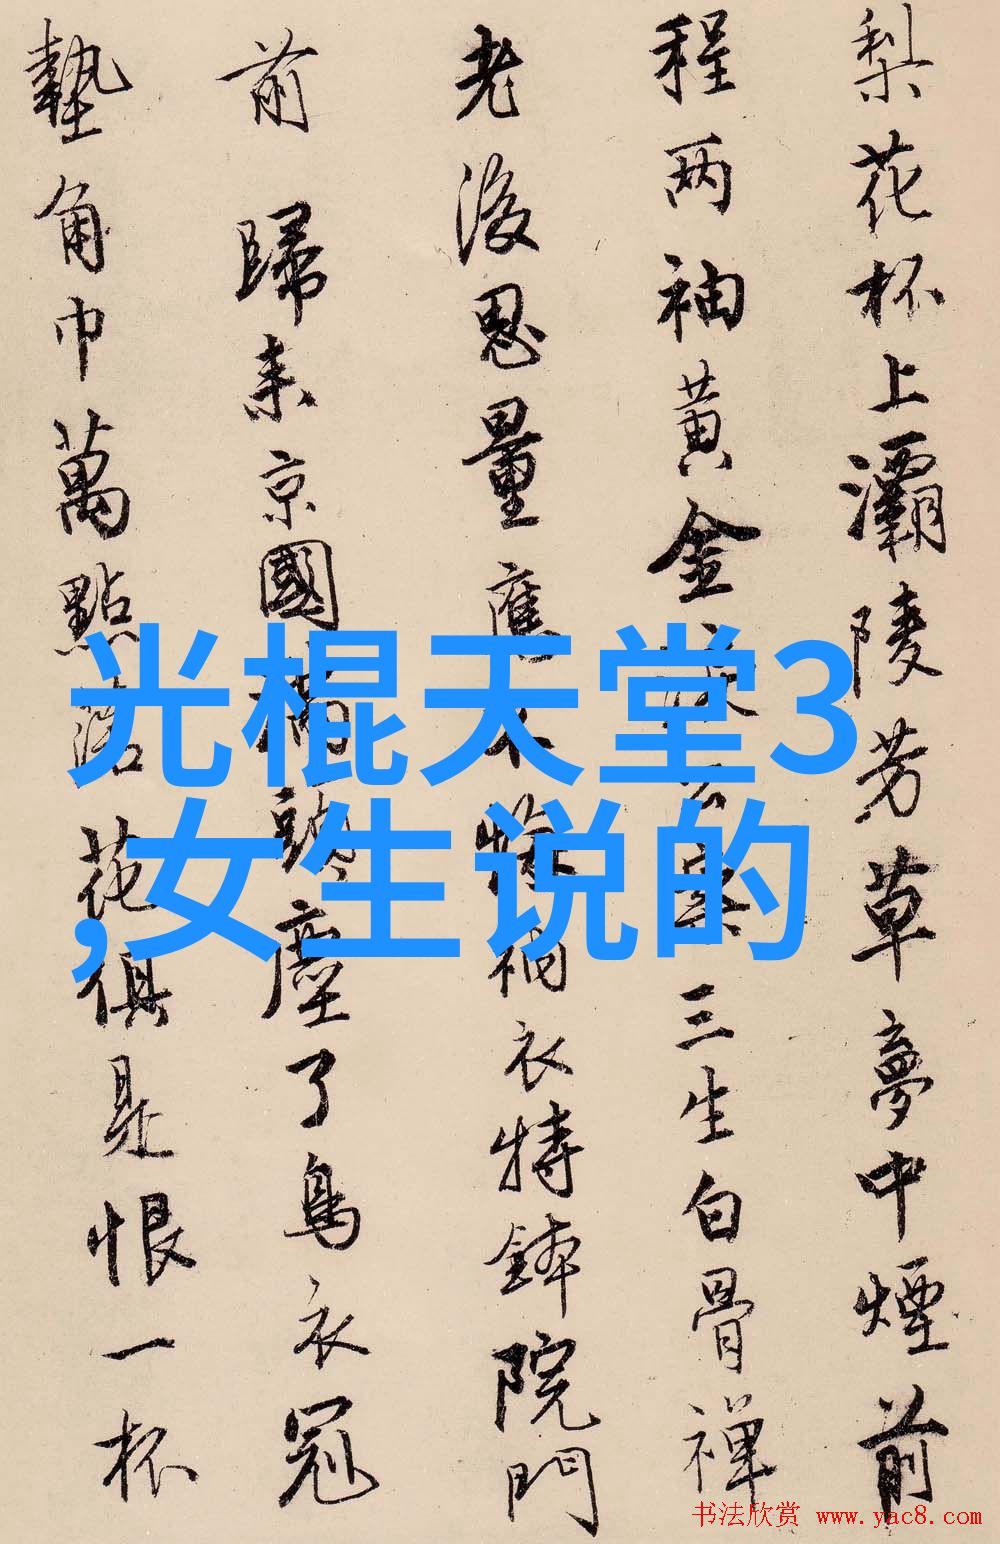 梨花杯上灞陵芳草夢中煙前
程两袖黄金淚公案三生白骨禪
老後思量應不悔衲衣持鉢院門
前歸来京國塵了烏衣冠
墊角巾萬點落花俱是恨一杯
光棍天堂3
,女生说的
书法欣赏 www.yac8.com